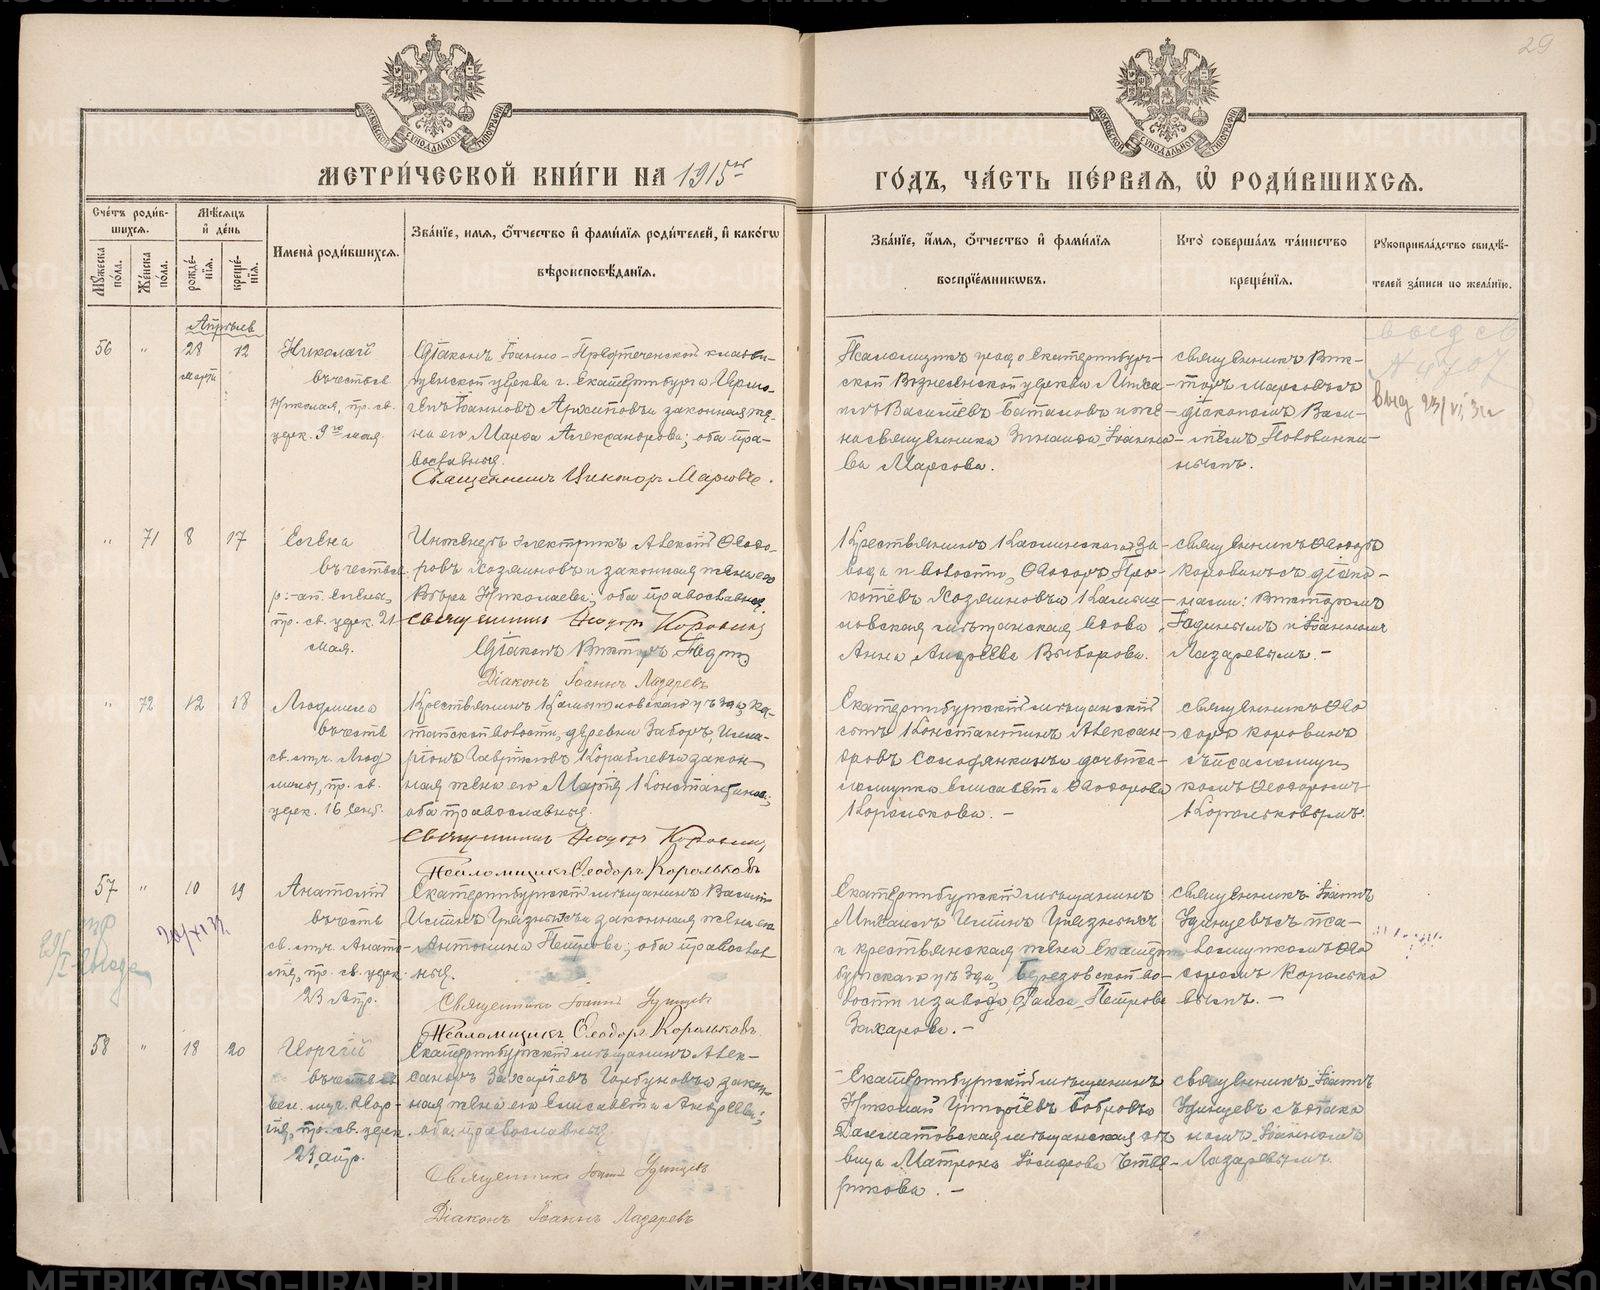 29
МЕТРИ́ЧЕСКОЙ КНИ́ГИ НА 1915ый
ГО́ДЪ, ЧА́СТЬ ПЕ́РВАЯ, Ѡ РОДИ́ВШИХСЯ.
Сче́тъ роди́в-
шихся.
Мꙋжеска по́ла.
Же́нска по́ла.
Мѣсяцъ
и де́нь
рожде́-
нїя.
креще́-
нїя.
Имена̀ роди́вшихся.
Зва́нїе, имя, ѻтчество и фами́лїя роди́телей, и како́гѡ
вѣроисповѣ́данїя.
Зва́нїе, и́мя, ѻтчество и фами́лїя
воспрїе́мникωвъ.
Кто̀ соверша́лъ та́инство
креще́нїя.
Рꙋкоприкла́дство свидѣ́-
телей за́писи по жела́нїю.
Апрѣль
56 " 28 12 Николай
марта
въ честь св.
Николая, пр. св.
церк. 9го мая.
Діаконъ Іоанно-Предтеченской кладби-
щенской церкви г. Екатеринбурга
Іоанновъ Архиповъ и законная же-
на его Марѳа Александрова; оба пра-
вославные.
Священникъ Викторъ Марсовъ.
Псаломщикъ градо Екатеринбург-
ской Вознесенской церкви Миха-
илъ Васильевъ Баталовъ и же-
на священника Зинаида Іоанно-
ва Марсова.
священникъ Вик-
торъ Марсовъ съ
діакономъ Васи-
ліемъ
нымъ.
" 71 8 17 Елена
въ честь св.
р.-ап. Елены,
пр. св. церк. 21
мая.
Инженеръ электрикъ Алексѣй Ѳеодо-
ровъ Хозяиновъ и законная жена его
Вѣра Николаева; оба православные.
Священникъ Ѳеодоръ Коровинъ
Діаконъ Викторъ
Діаконъ Іоаннъ Лазаревъ
Крестьянинъ Каслинскаго за-
вода и волости, Ѳеодоръ Про-
копьевъ Хозяиновъ и Камыш-
ловская мѣщанская вдова
Анна Андреева Выборова.
священникъ Ѳеодоръ
Коровинъ съ діако-
нами: Викторомъ
и Іоанномъ
Лазаревымъ. -
" 72 12 18 Людмила
въ честь
св. муч. Люд
милы, пр. св.
церк. 16 сент.
Крестьянинъ Камышловскаго уѣзда,
волости, деревни Заборъ,
Гавріиловъ Кораблевъ и закон-
ная жена его Марія Константинова;
оба православные.
Священникъ Ѳеодоръ Коровинъ
Псаломщикъ Ѳеодоръ Корольковъ
Екатеринбургскій мѣщанскій
сынъ Константинъ Алексан-
дровъ и дочь пса-
ломщика Елисавета Ѳеодорова
Королькова. -
священникъ Ѳео
доръ Коровинъ
съ псаломщи
комъ Ѳеодоромъ
Корольковымъ.
57 " 10 19 Анатолій
въ честь
св. муч. Анато-
лія, пр. св. церк.
23 Апр.
Екатеринбургскій мѣщанинъ Василій
Грязныхъ и законная жена его
Антонина Петрова; оба православ
ные.
Священникъ Іоаннъ Удинцевъ
Псаломщикъ Ѳеодоръ Корольковъ
Екатеринбургскій мѣщанинъ
Михаилъ Грязныхъ
и крестьянская жена Екатерин
бургскаго уѣзда, Березовской во-
лости и завода, Раиса Петрова
Захарова. -
священникъ Іоаннъ
Удинцевъ съ пса-
ломщикомъ Ѳео
доромъ Королько
вымъ. -
58 " 18 20 Георгій
въ честь св.
вел. муч. Геор-
гія, пр. св. церк.
23 апр.
Екатеринбургскій мѣщанинъ Алек-
сандръ Захаріевъ Горбуновъ и закон-
ная жена его Елисавета Андреева;
оба православные.
Священникъ Іоаннъ Удинцевъ
Діаконъ Іоаннъ Лазаревъ
Екатеринбургскій мѣщанинъ
Николай Григоріевъ Бобровъ и
Далматовская мѣщанская дѣ
вица Матрона
рикова. -
священникъ Іоаннъ
Удинцевъ съ діако
номъ Іоанномъ
Лазаревымъ.
METRIKI.GASO-URAL.RU